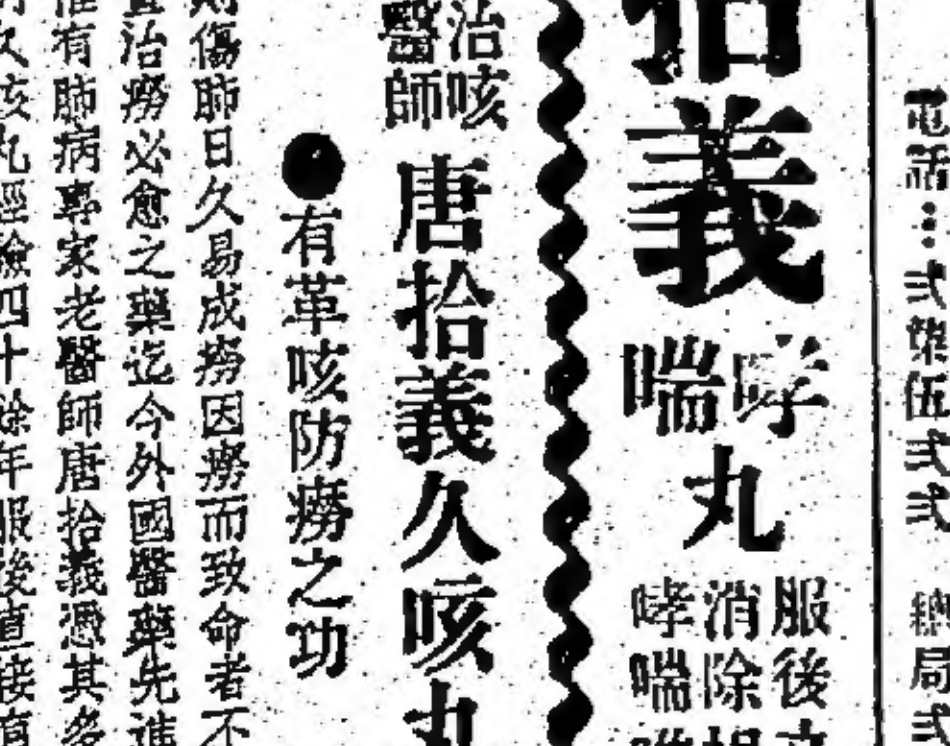 電話：弍柒伍弍弍 總局弍
拾義
哮喘丸
服後
消除
哮喘
治咳醫師
唐拾義久咳丸
●有革咳防癆之功
則傷肺日久易成癆因癆而致命者不
治癆必愈之藥迄今外國醫藥先進
有肺病專家老醫師唐拾義憑其多
久咳丸經驗四十餘年服後直接